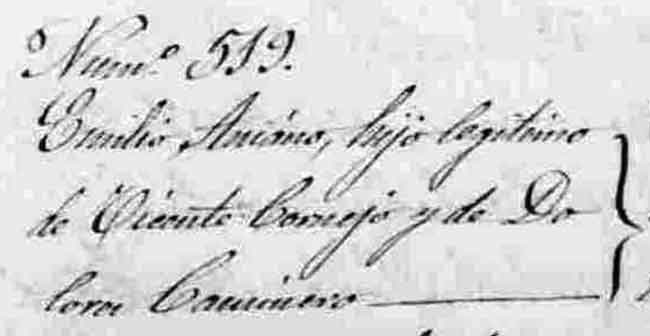 Num.º 519.
Emilio Antonio, hijo legitimo
de Vicente Cornejo y de Do
lores Caminero